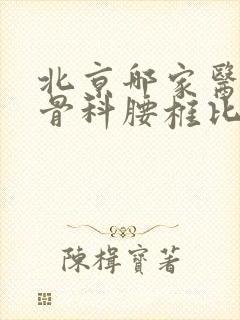 北京邮家醫
骨科腰椎比
陳楫寶著